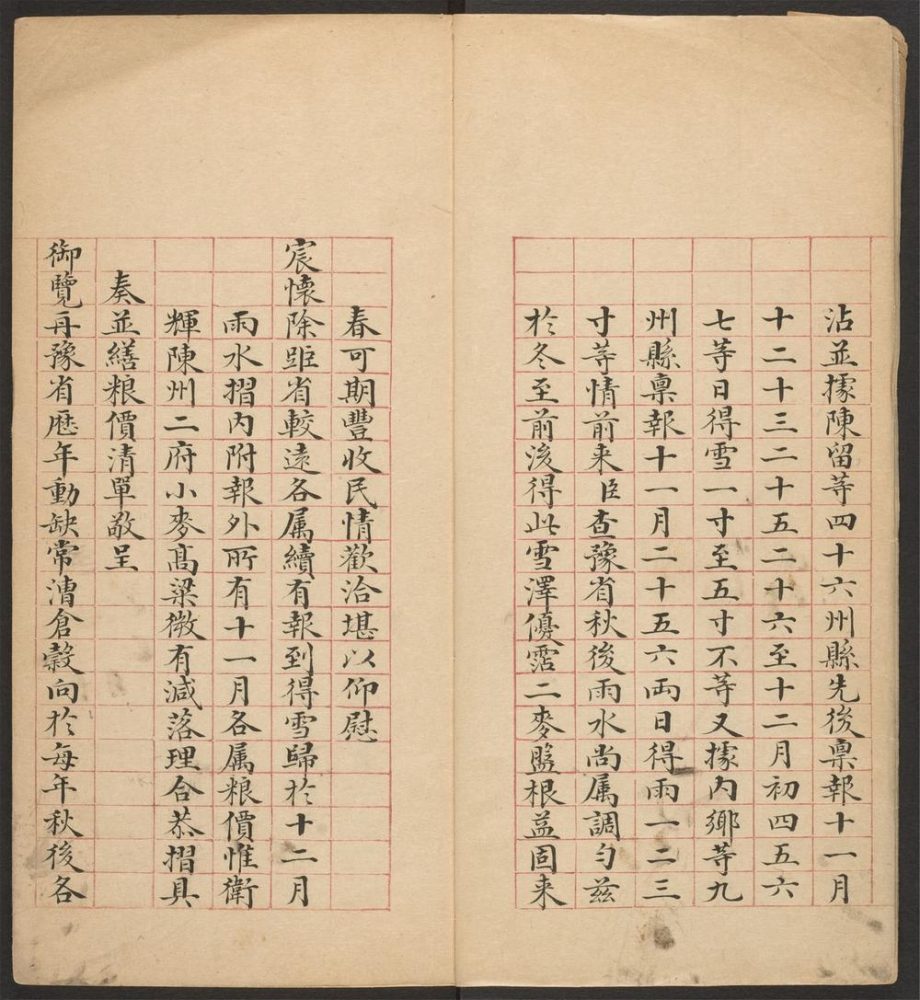 沾並據陳留等四十六州縣先後禀報十一月
十二十三二十五二十六至十二月初四五六
七等日得雪一寸至五寸不等又據内鄉等九
州縣禀報十一月二十五六兩日得雨一二三
寸等情前来臣查豫省秋後雨水尚属調勻兹
於冬至前後得此雪澤優霑二麥盤根益固来
春可期豐收民情歡洽堪以仰慰
宸懷除距省較遠各属續有報到得雪歸於十二月
雨水摺内附報外所有十一月各属粮價惟衛
輝陳州二府小麥髙粱微有減落理合恭摺具
奏並繕粮價清單敬呈
御覽再豫省歴年動缺常漕倉穀向於每年秋後各